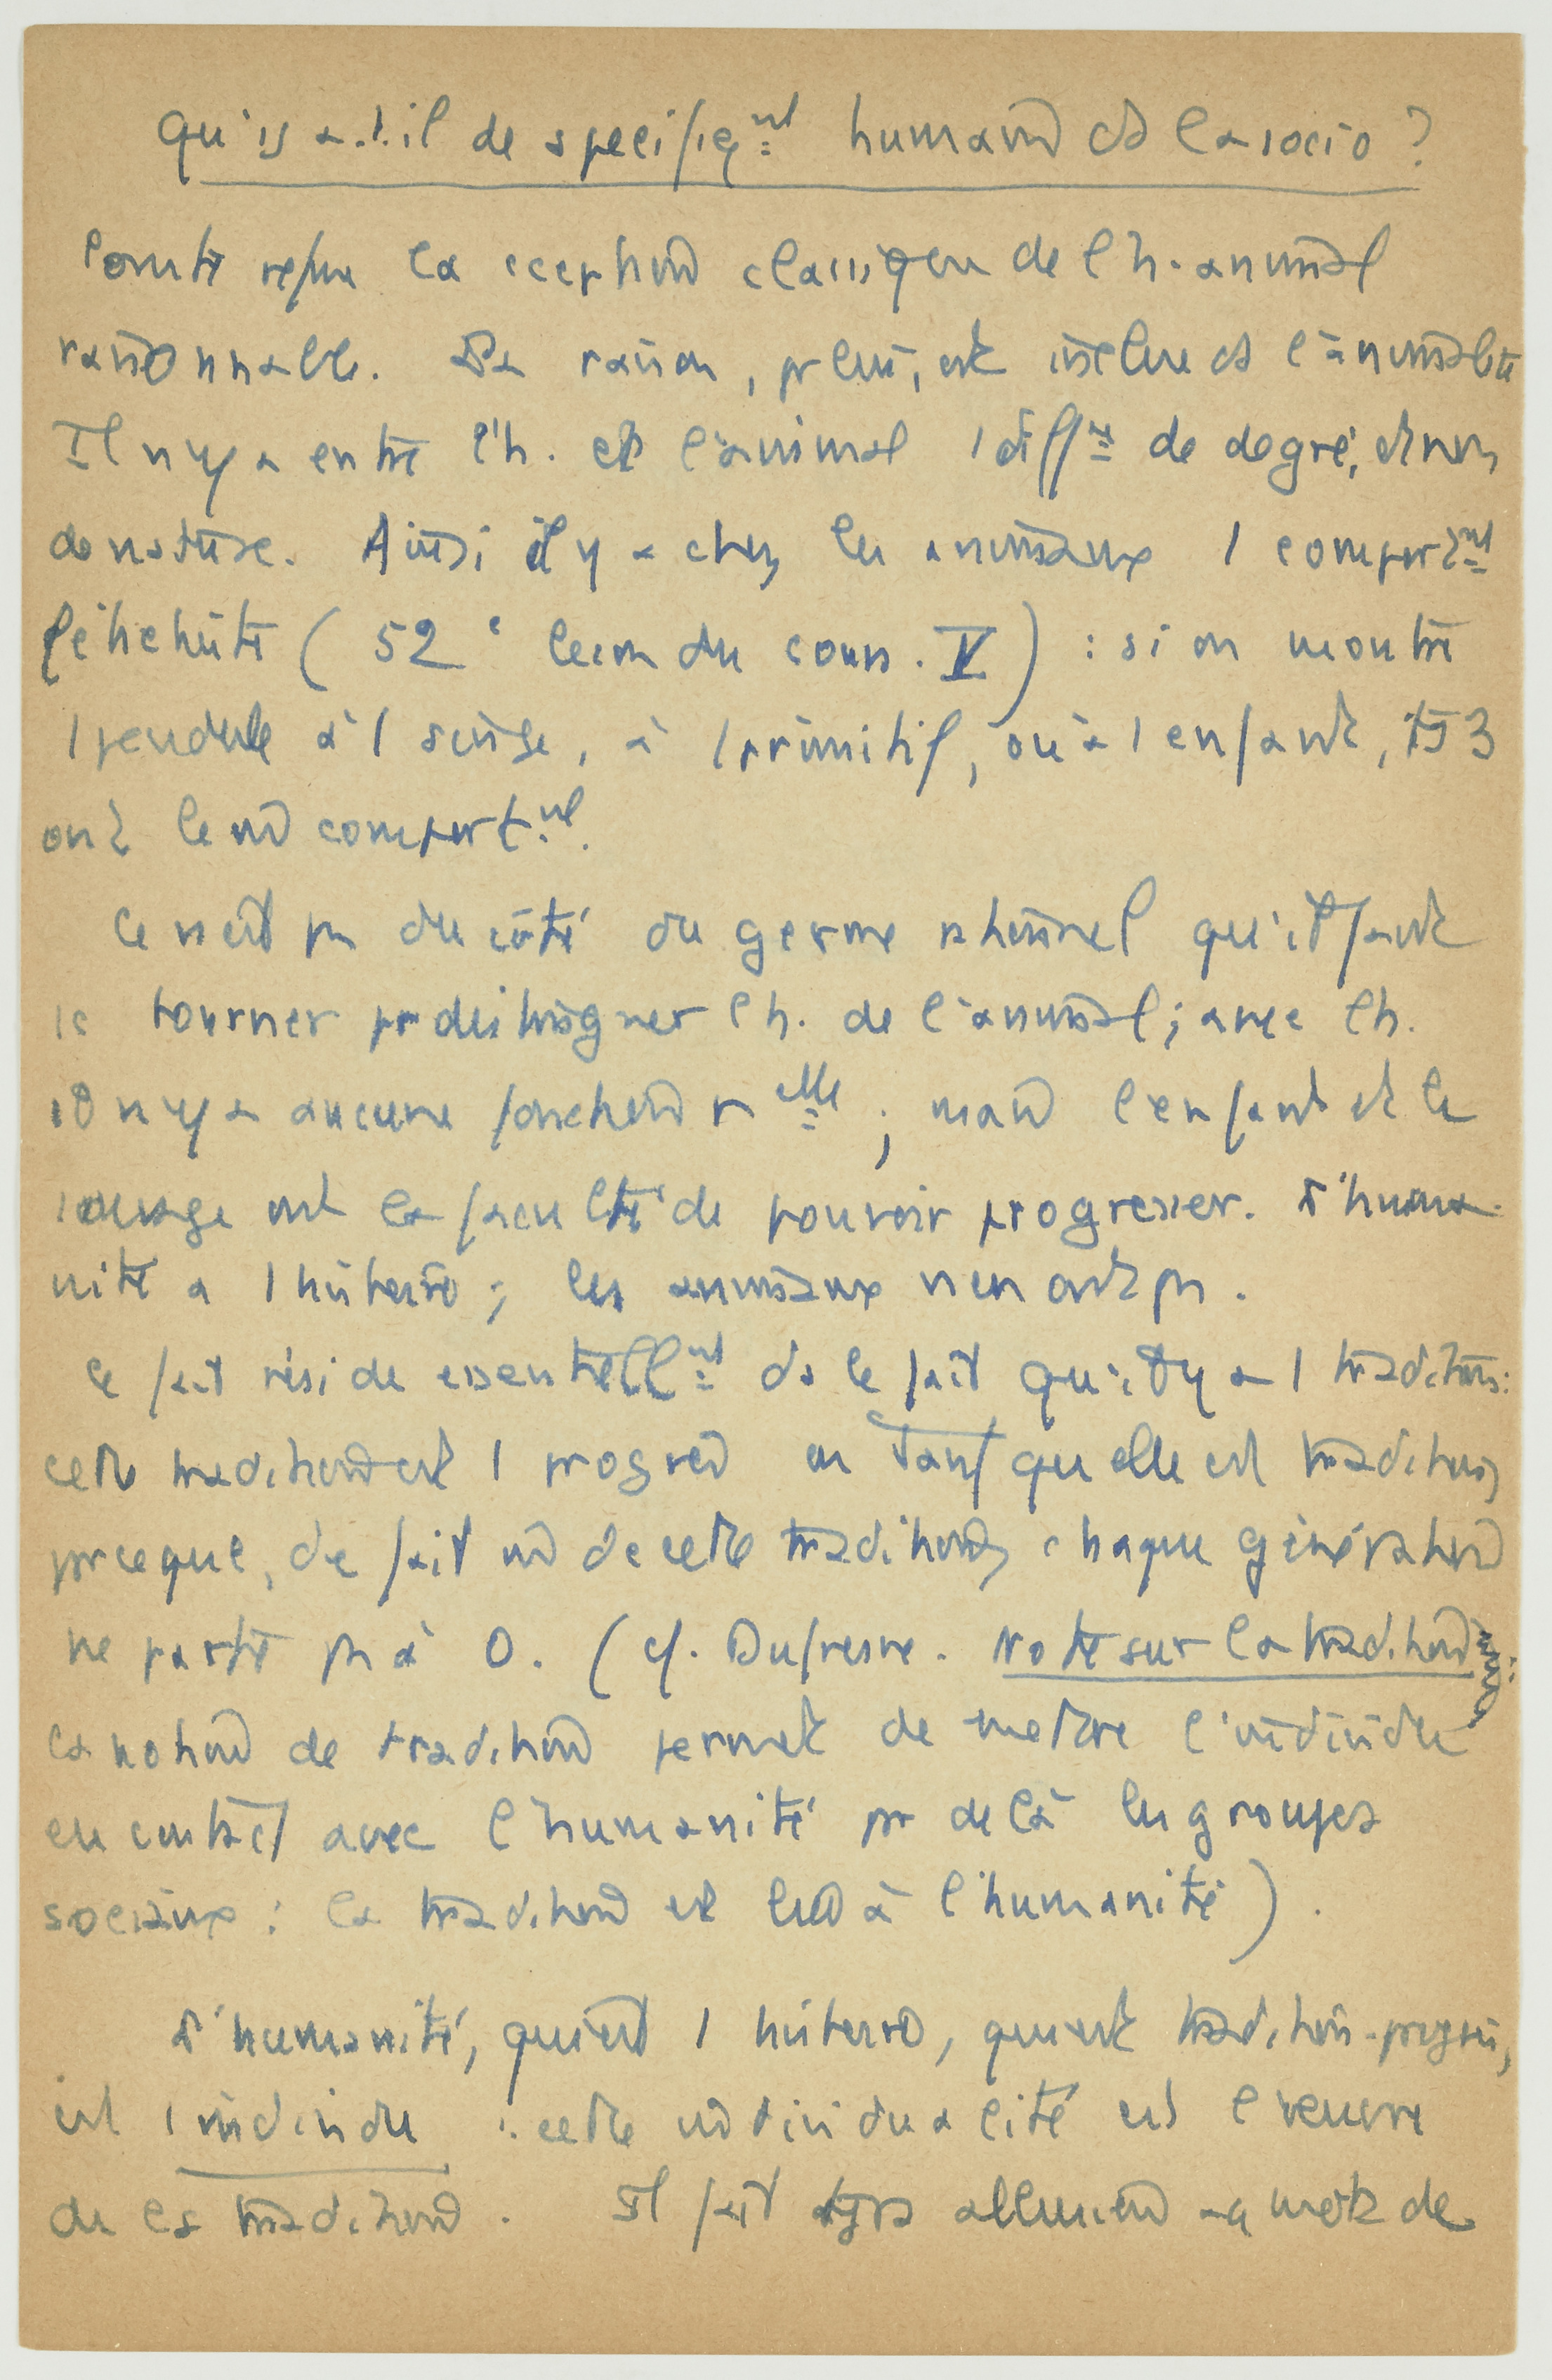 Qu'y a-t-il de specifiqnt humain ds la socio ?
Comte refuse la ception classique de l'h. animal
raisonnable. La raison, pr lui, est incluse ds l'animalité
Il n'y a entre l'h. et l'animal 1 diffce de degré, et non
de nature. Ainsi il y a chez les animaux 1 comportnt
fétichiste ( 52e leçon du cours. V ) : si on montre
1 pendule à 1 singe, à 1 primitif, ou à 1 enfant, ts 3
ont le m comportnt.
Ce n'est pas du côté du germe rationnel qu'il faut
se tourner pr distinguer l'h. de l'animal ; avec l'h.
il n'y a aucune fonction nelle ; mais l'enfant et le
sauvage ont la faculté de pouvoir progresser. L'huma-
nité a 1 histoire ; les animaux n'en ont pas.
Ce fait réside essentiellnt ds le fait qu'il y a 1 tradition :
cette tradition est 1 progrès en tant qu'elle est tradition,
prceque, du fait m de cette tradition, chaque génération
ne parte pas à 0. ( cf. Dufresne. Note sur la tradition
la notion de tradition permet de mettre l'individu
en contact avec l'humanité pr delà les groupes
sociaux : la tradition est liée à l'humanité ) .
L'humanité, qui est 1 histoire, qui est tradition-progrès,
est 1 individu : cette individualité est l'œuvre
de la tradition . Il fait tjrs allusion au mot de